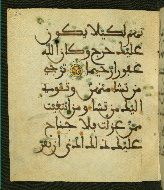 نهم لكيلا يكون
عليك حرج وكان الله
غفورا رحيما ترجي
من تشا منهن وتؤوي
إليك من تشا ومن ابتغيت
ممن عزلت فلا جناح
عليك ذلك أدنى أن تقر